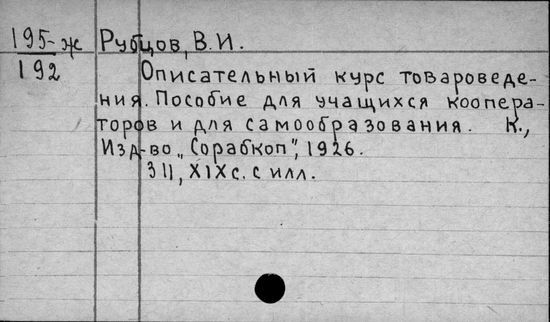 195-ж Рубцов, В. И.
192 Описательный курс товароведе-
ния. Пособие для учащихся коопера-
торов и для самообразования. К.,
Изд-во „Сорабкоп", 1926.
311, XIX с. с илл.